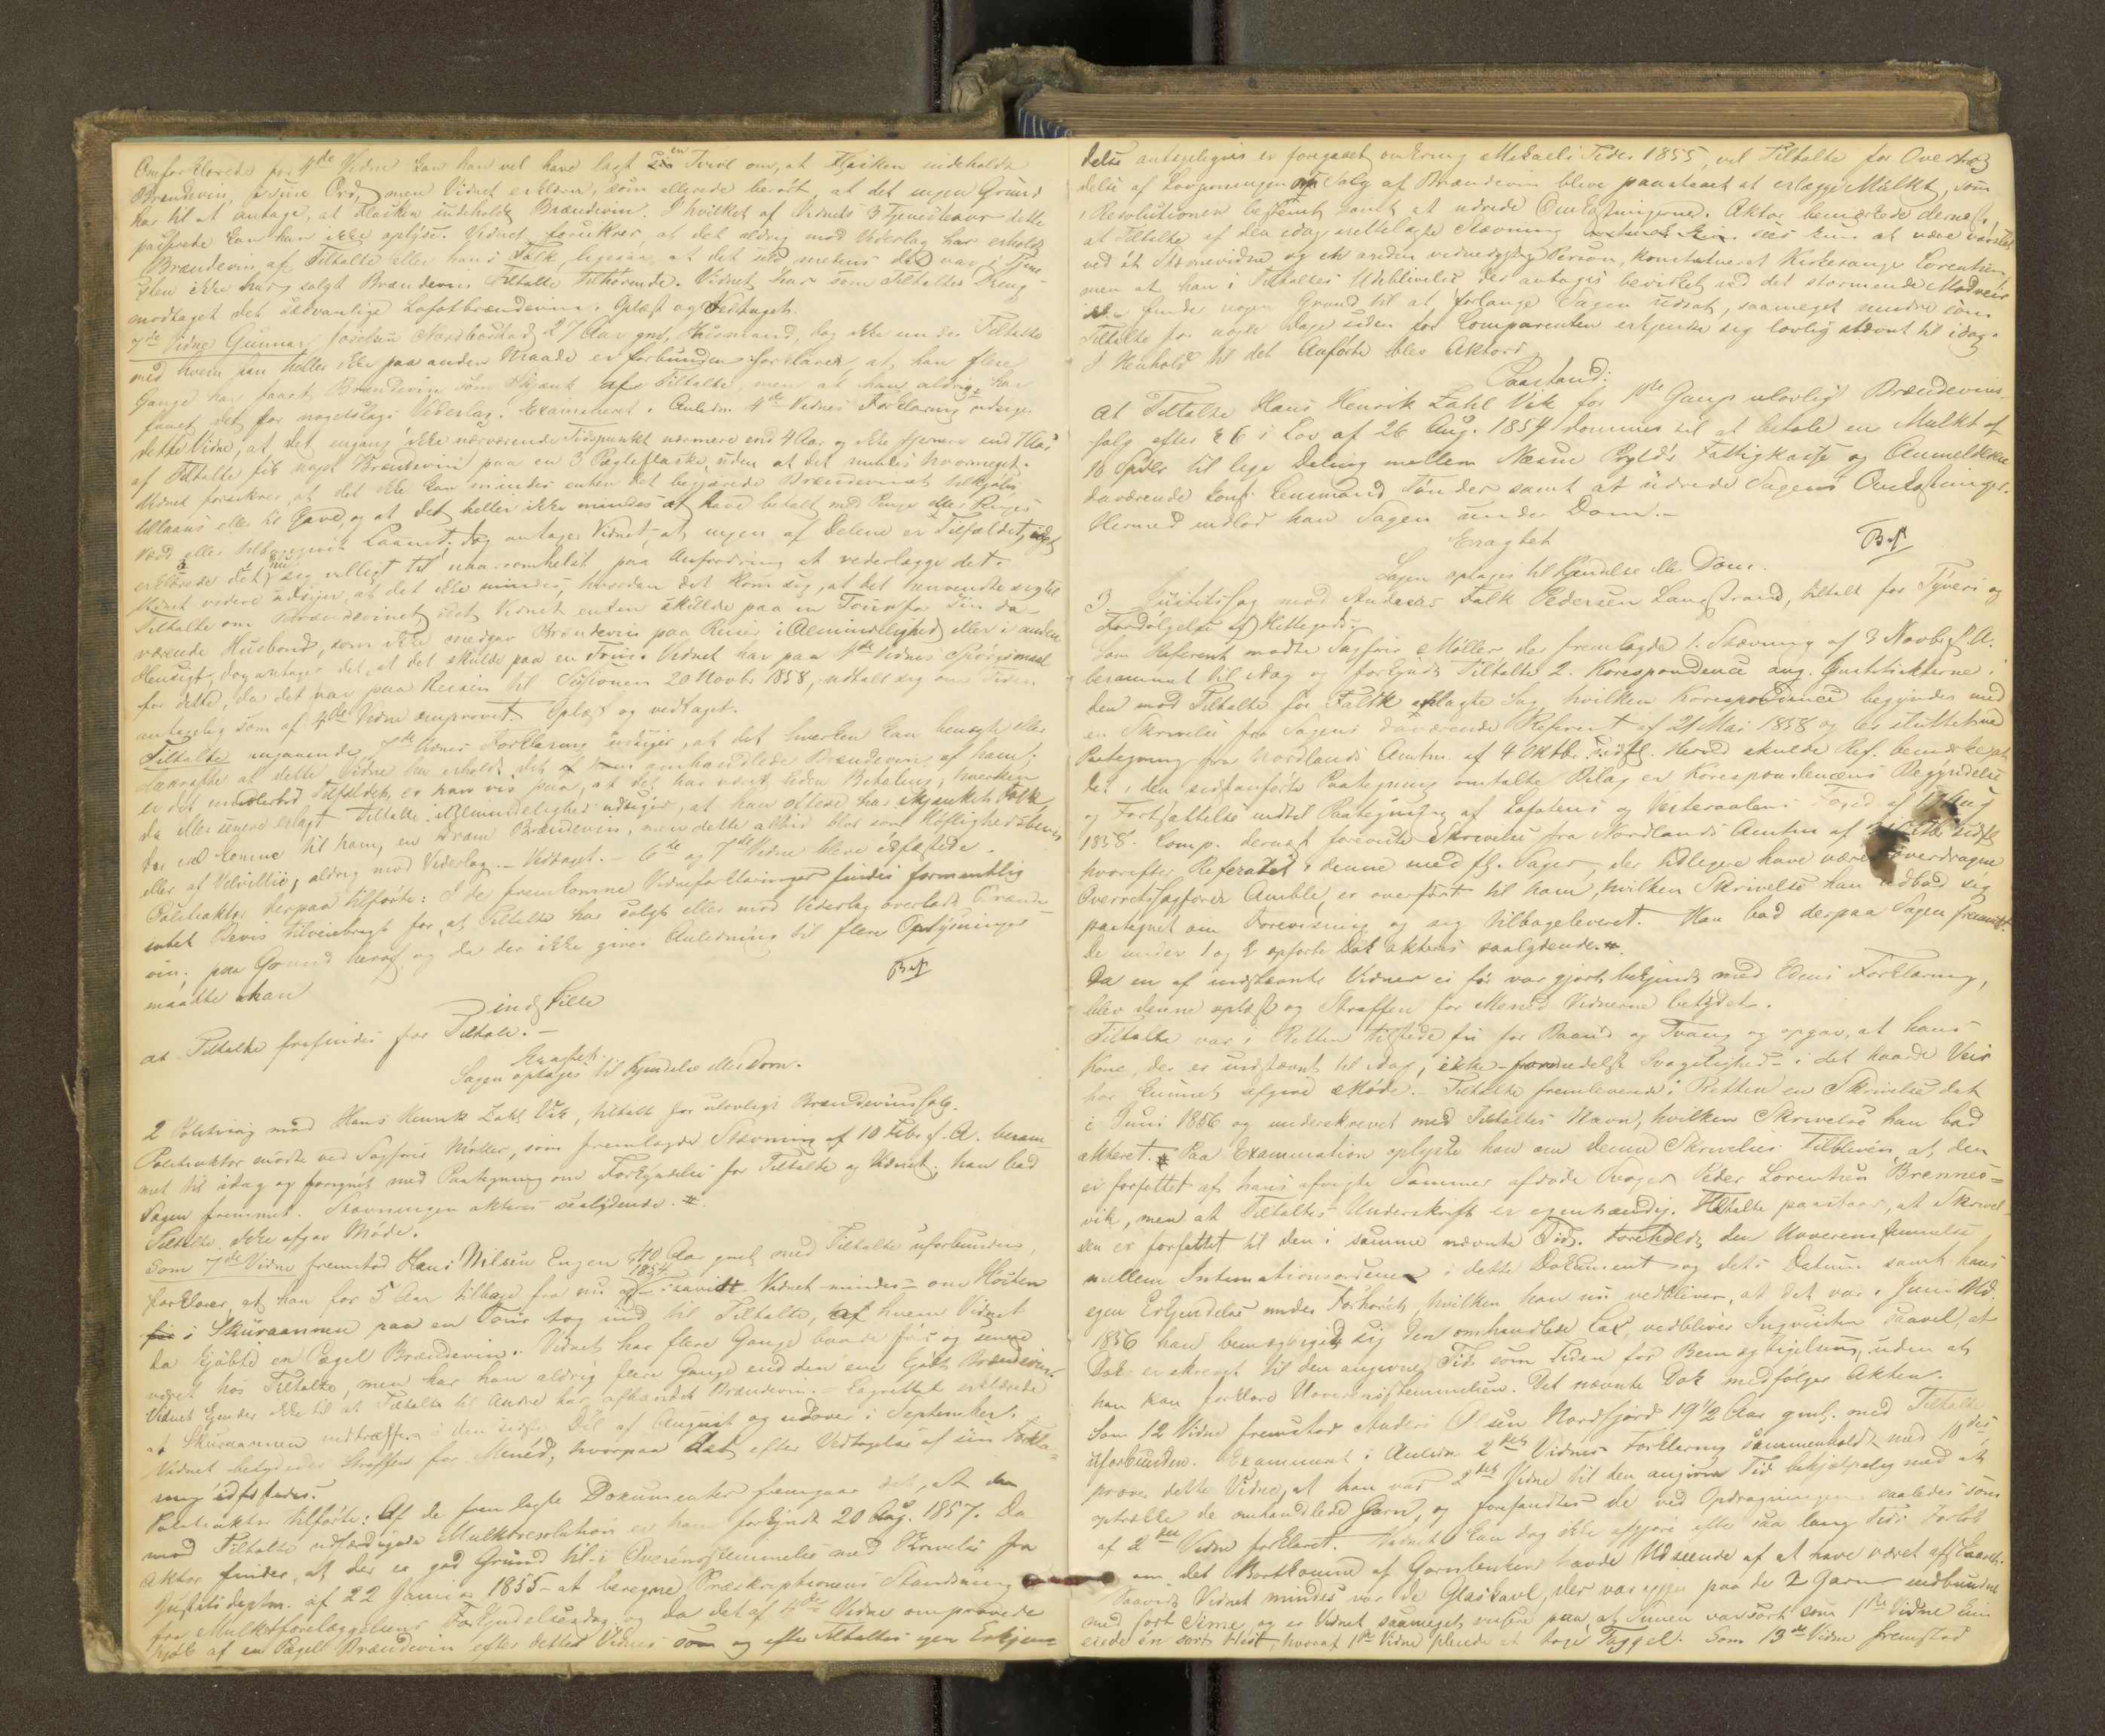 Omforklarede for 4de Vidne kan han vel have lagt en Tvivl om, at Flasken indeholdt
Brændevin, i sine Ord, men Vidnet erklærer, som allerede berørt, at det ingen Grund
har til at antage, at Flasken indeholdt Brændevin. I hvilket af Vidnets 3 Tjenesteaar dette
passerede kan han ikke oplyse. Vidnet forsikrer, at det aldrig mod Vederlag har erholdt
Brændevin af Tiltalte eller hans Folk, ligesaa at det selv medens det var i Tjene-
sten ikke har solgt Brændevin Tiltalte tilhørende. Vidnet har som Tiltaltes Dreng
modtaget det sædvanlige Lofotbrændevin. Oplæst og vedtaget.
7de Vidne Gunnar Josefsen Nordbostad 27 Aar gml, Husmand, dog ikke under Tiltalte
med hvem han heller ikke paa anden Maade er forbunden forklarer, at han flere
Gange har faaet Brændevin som Skjænk af Tiltalte, men at han aldrig har
faaet det for nogetslags Vederlag. Examineret i Anledn. 4de Vidnes Forklaring udsiger
dette Vidne, at det engang ikke nærværende Tidspunkt nærmere end 4 Aar og ikke fjernere end 7 Aar
af Tiltalte fik noget Brændevin paa en 3 Pægleflaske, uden at det mindes hvormeget.
Vidnet forsikrer, at det ikke kan mindes enten det begjærede Brændevinet tilkjøbs
tillaans eller til Gave, og at det heller ikke mindes at have betalt med Penge eller Penges
Værd eller tilbagegivet Laanet. Dog antager Vidnet, at ingen af Delene er Tilfældet, idet
erklærede det sig villigt til naarsomhelst paa Anfordring at vederlægge det.
Vidnet videre udsiger, at det ikke mindes, hvordan det kom sig, at det henvendte sig til
Tiltalte om Brændevinet idet Vidnet enten skulde paa en Tour for sin da-
værende Husbond, som ikke medgav Brændevin paa Reiser i Almindelighed eller i anden
Hensigt, dog antager det, at det skulde paa en Tour. Vidnet har paa 4de Vidnes Spørgsmaal
for dette, da det var paa Reisen til Sessionen 20 Novbr 1858, udtalt sig om Tiden
antagelig som af 4de Vidne omprovet. Oplæst og vedtaget.
Tiltalte angaaende 7de Vidnes Forklaring udsiger, at det hverken kan benægte eller
bekræfte at dette Vidne har erholdt det omhandlede Brændevin af ham;
er det imidlertid Tilfældet, er han vis paa, at det har været uden Betaling, hverken
da eller senere erlagt. Tiltalte i Almindelighed udsiger, at han oftere har skjænket Folk,
der vil komme til ham, en Dram Brændevin, men dette altid blot som Høflighedsbeviis
eller af Velvillie, aldrig mod Vederlag. – Vedtaget. – 6te og 7de Vidne bleve edfæstede.
Politiaktor herpaa tilførte: I de fremkomne Vidneforklaringer findes formentlig
intet Bevis tilveiebragt for, at Tiltalte har solgt eller mod Vederlag overladt Brænde-
vin; paa Grund heraf, og da der ikke gives Anledning til flere Oplysninger
maatte han
indstille
at Tiltalte frifindes for Tiltale. –
Eragtet:
Sagen optages til Kjendelse eller Dom.
2 Politisag mod Hans Henrik Zahl Vik, tiltalt for ulovligt Brændevinssalg.
Politiaktor mødte ved Sagfører Møller, som fremlagde Stævning af 10 Febr. f. A. beram-
met til idag og forsynet med Paategning om Forkyndelse for Tiltalte og Vidnet; han bad
Sagen fremmet. Stævningen akteres saalydende. #
Tiltalte ikke afgav Møde.
Som 7de Vidne fremstod Hans Nilsen Engen 40 Aar gml med Tiltalte uforbunden,
forklarer, at han for 5 Aar tilbage fra nu 1854 saavidt Vidnet mindes – om Høsten
i Skuraannen paa en Tour tog ind til Tiltalte, af hvem Vidnet
da kjøbte en Pægel Brændevin. Vidnet har flere Gange baade før og senere
været hos Tiltalte, men har han aldrig flere Gange end den ene kjøbt Brændevin.
Vidnet kjender ikke til at Tiltalte til Andre har afhændet Brændevin. – Lagrettet erklærede
at Skuraannen indtræffer i den sidste Del af August og udover i September.
Vidnet betydedes Straffen for Mened, hvorpaa det efter Vedtagelse af sin Forkla-
ring edfæstedes.
Politiaktor tilførte: Af de fremlagte Dokumenter fremgaar det, at den
mod Tiltalte udfærdigede Mulktresolution er ham forkyndt 20 Aug. 1857. Da
Aktor finder, at der er god Grund til – i Overensstemmelse med Skrivelse fra
Justitsdeptm. af 22 Januar 1855 – at beregne Præskriptionens Standsning
fra Mulktforelæggelsens Forkyndelsesdag og da det af 4de Vidne omprovede
Kjøb af en Pægel Brændevin efter dettes Vidnes som og efter Tiltaltes egen Erkjen-
delse antageligvis er foregaaet omkring Mikaeli Tider 1855, vil Tiltalte for Overtræ-
delse af Lovgivningen om Salg af Brændevin blive paastaaet at erlægge Mulkt, som
i Resolutionen bestemt samt at udrede Omkostningerne. Aktor bemærkede dernæst,
at Tiltalte af den idag irettelagte Stævning sees kun at være varslet
ved ét Stævnevidne og en anden vederhæftig Person, konstitueret Kirkesanger Lorentsen,
men at han i Tiltaltes Udeblivelse der antages bevirket ved det stormende Modveir
ikke finder nogen Grund til at forlange Sagen udsat, saameget mindre som
Tiltalte for nogle Dage siden for Comparenten erkjendte sig lovlig stævnt til idag.
I Henhold til det Anførte blev Aktors
Paastand:
At Tiltalte Hans Henrik Zahl Vik for 1ste Gangs ulovligt Brændevins-
salg efter § 6 i Lov af 26 Aug. 1854 dømmes til at betale en Mulkt af
10 Spdlr til lige Deling mellem Næsne Prgld's Fattigkasse og Anmelderen
daværende konst. Lensmand Tønder samt at udrede Sagens Omkostninger.
Hermed indlod han Sagen under Dom. –
Eragtet
Sagen optages til Kjendelse eller Dom.
3. Justitssag mod Andreas Falk Pedersen Langstrand, tiltalt for Tyveri og
Fordølgelse af Hittegods.
Som Referent mødte Sagfører Møller der fremlagde 1. Stævning af 3 Novbr f. A.
berammet til idag og forkyndt Tiltalte 2. Korrespondence ang. Questitikterne i
den mod Tiltalte for Falsk anlagte Sag, hvilken Korrespondence begynder med
en Skrivelse fra Sagens daværende Referent af 21 Mai 1858 og er sluttet med
Paategning fra Nordlands Amtm. af 4 Oktbr. sidstl. Herved skulde Ref. bemærke, at
det i den sidstanførte Paategning omtalte Bilag er Korrespondencens Begyndelse
og Fortsættelse indtil Paategning af Lofotens og Vesteraalens Foged af 17 Aug
1858. Comp. dernæst foreviste Skrivelse fra Nordlands Amtm af sidstl
hvorefter Referatet i denne med fl. Sager, der tidligere have været overdragne
Overretssagfører Amble, er overført til ham, hvilken Skrivelse han udbad sig
paategnet om Forevisning og sig tilbageleveret. Han bad derpaa Sagen fremmet.
De under 1 og 2 opførte Dok akteres saalydende. #
Da en af indstævnte Vidner ei før var gjort bekjendt med Edens Forklaring,
blev denne oplæst og Straffen for Mened Vidnerne betydet.
Tiltalte var i Retten tilstede fri for Baand og Tvang og opgav, at hans
Kone, der er indstævnt til idag, ikke – formedelst Svagelighed – i det haarde Veir
har kunnet afgive Møde. Tiltalte fremleverede i Retten en Skrivelse dat
i Juni 1856 og underskrevet med Tiltaltes Navn, hvilken Skrivelse han bad
akteret. # Paa Examination oplyste han om denne Skrivelses Tilbliven, at den
er forfattet af hans afvigte Sommer afdøde Svoger Peder Lorentsen Brennes-
vik, men at Tiltaltes Underskrift er egenhændig. Tiltalte paastaar, at Skrivel-
sen er forfattet til den i samme nævnte Tid. Foreholdt den Uoverensstemmelse
mellem Intimationsordenen i dette Dokument og dets Datum samt hans
egen Erkjendelse under Forhøret, hvilken han nu vedbliver, at det var i Juni Md.
1856 han bemægtigede sig den omhandlede Lax, vedbliver Inqvisiten saavel, at
Dok. er skrevet til den angivne Tid som Tiden for Bemægtigelsen, uden at
han kan forklare Uoverensstemmelsen. Det nævnte Dok medfølger Akten.
Som 12 Vidne fremstod Anders Olsen Nordfjord 19 1/2 Aar gml. med Tiltalte
uforbunden. Examineret i Anledn 2det Vidnes Forklaring sammenholdt med 10des
prover dette Vidne, at han var 2det Vidne til den angivne Tid behjælpelig med at
optrække de omhandlede Garn, og forefandtes de ved Opdragningen saaledes som
af 2det Vidne forklaret. Vidnet kan dog ikke afgjøre efter saa lang Tids Forløb
om det Bortkomne af Garnlænken havde Udseende af at have været afskaaret.
Saavidt Vidnet mindes var de Glaskavl, der var paa de 2 Garn indbundne
med sort Sime, og er Vidnet saameget vissere paa at Simen var sort som 1ste Vidne kun
eiede en sort Hest, hvoraf 1ste Vidne pleiede at tage Taggel. Som 13de Vidne fremstod